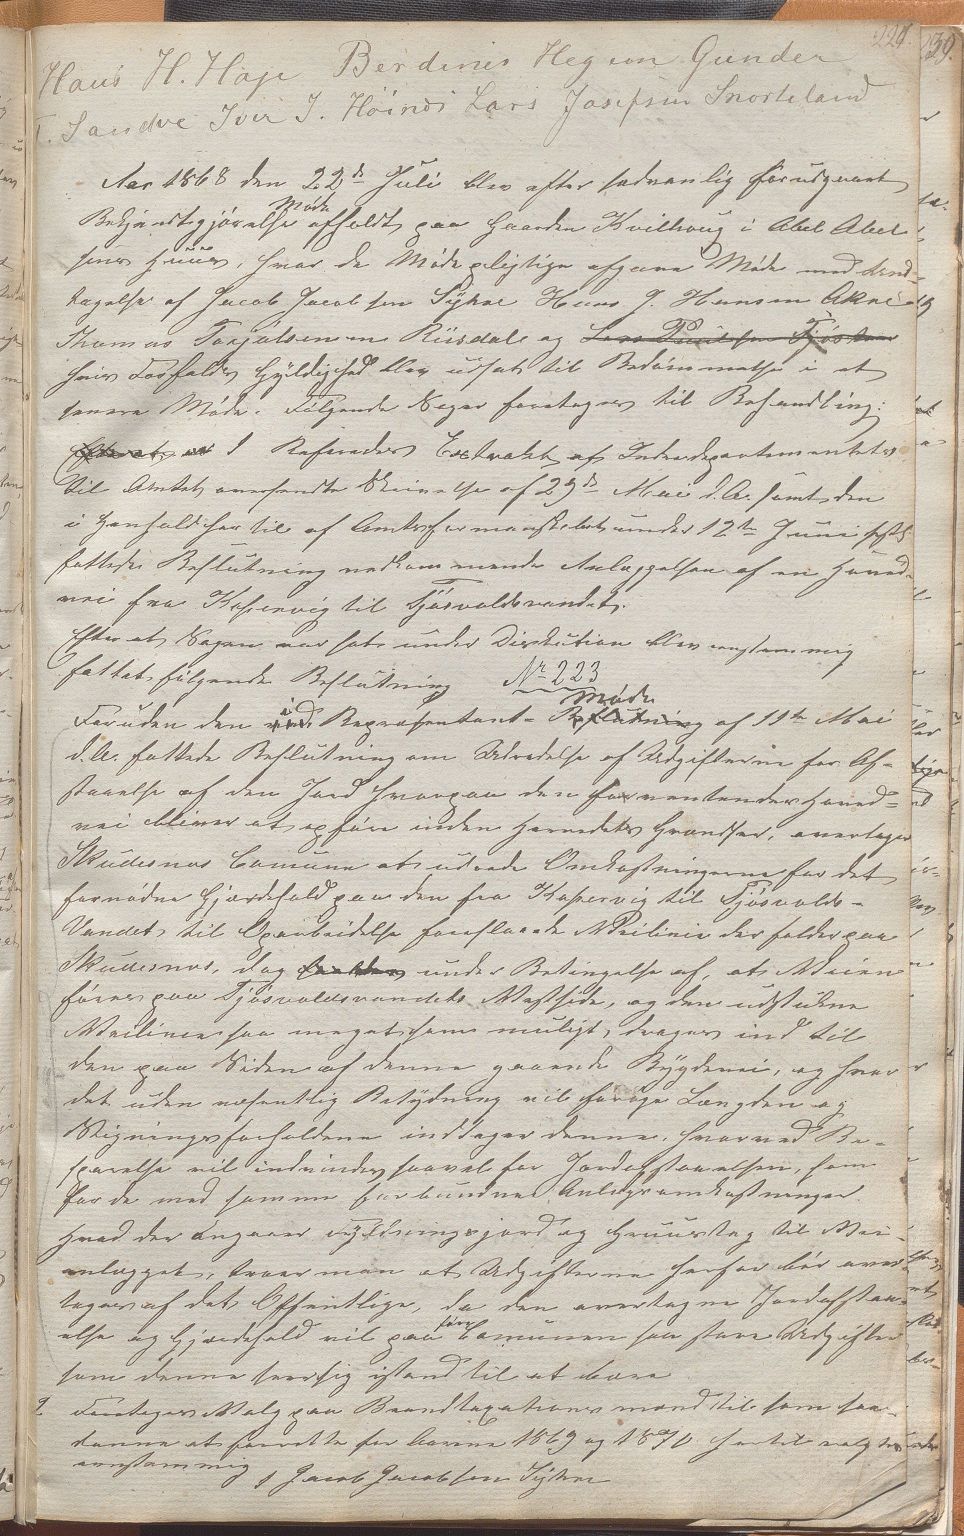 224. 30.
Hans H. Høje Berdines Hegion Gunder
T. Sandve Iver J. Høines Lars Josefsen Snorteland
Aar 1868 den 22de Juli blev efter sædvanlig forudgaaet
Bekjendtgjørelse Møde afholdt paa Gaarden Kvilhoug i Abel Abel-
sens Huus, hvor de Mødepligtige afgave Møde med Und-
tagelse af Jacob Jacobsen Syhre Hans J. Hansen Akre
Thomas Torjulsen Riisdal og Lars Tjøsten
hvis Forfalds Gyldighed blev udsat til Bedømmelse i et
senere Møde. Følgende Sager foretoges til Behandling:
1 Refereredes Extrakt af Indredepartementets
til Amtet oversendte Skrivelse af 29de Mai d.A. samt den
i Henhold hertil af Amtsformandskabet under 12te Juni
fattede Beslutning vedkommende Anlæggelsen af en Hoved-
vei fra Kopervig til Tjøsvoldvandet.
Efter at Sagen var sat under Diskution blev enstemmig
fattet følgende Beslutning Nr 223
Foruden den i Repræsentant- Beslutning Møde af 11te Mai
d.A. fattede Beslutning om Udredelse af Udgifterne for Af-
staaelse af den Jord hvorpaa den forventendes Hoved-
vei bliver at opføre inden Herredets Grændser, overtager
Skudesnæs Comune at udrede Omkostningerne for det
fornødne Gjærdehold paa den fra Kopervig til Tjøsvolds-
Vandet til Oparbeidelse foreslaaede Veilinie der falder paa
Skudesnæs, dog under Betingelse af, at Veien
føres paa Tjøsvoldsvandets Vestside, og den udstukne
Veilinie saa meget som muligt, drages ind til
den paa Siden af denne gaaende Bygdevei, og hvor
det uden væsentlig Betydning vil forøge Længden og
Stigningsforholdene inddrager denne, hvorved Be-
sparelse vil indvindes saavel for Jordafstaaelsen, som
for de med samme forbundne Anlægsomkostninger.
Hvad der angaaer Fyldningsjord og Gruustag til Vei-
anlægget, troer man at Udgifterne herfor bør over-
tages af det Offentlige, da den overtagne Jordafstaa-
else og Gjærdehold vil paaføre Comunen saa store Udgifter
som denne seer sig istand til at bære
2 Foretoges Valg paa Brandtaxationsmænd til som saa-
danne at forrette for Aarene 1869 og 1870. Hertil valgtes
enstemmig 1 Jacob Jacobsen Syhre